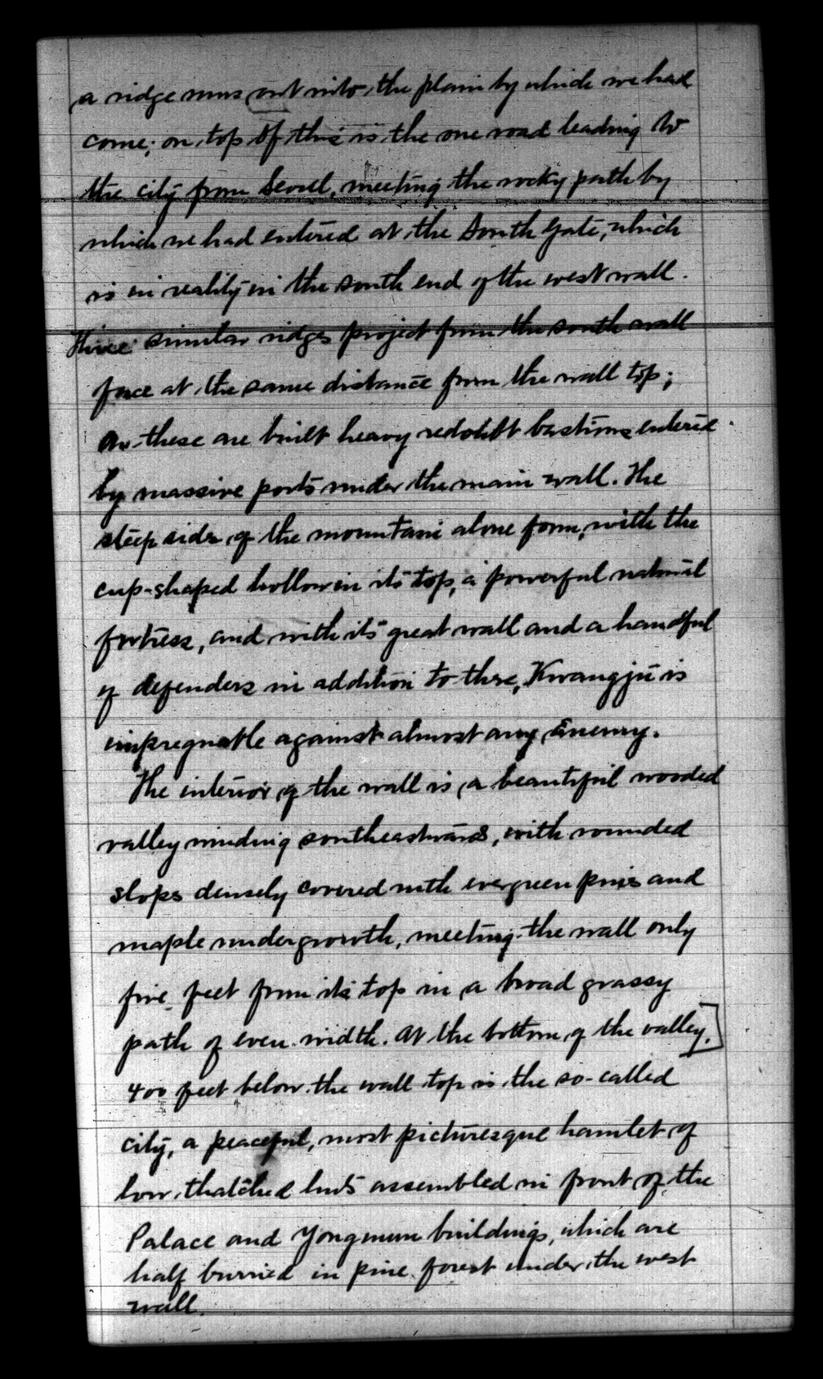 a ridge runs out into the plain by which we had
come; on top of this is the one road leading to
the city from Seoul, meeting the rocky path by
which we had entered at the South Gate, which
is in reality in the south end of the west wall.
Three similar ridges project from the south wall
face at the same distance from the wall top;
on these are built heavy redoubt bastions entered
by massive ports under the main wall. The
steep sides of the mountain alone form, with the
cup-shaped hollow in its top, a powerful natural
fortress, and with its great wall and a handful
of defenders in addition to these, Kwangju is
impregnable against almost any enemy.
The interior of the wall is a beautiful wooded
valley winding southeastward, with rounded
slopes densely covered with evergreen pines and
maple undergrowth, meeting the wall only
five feet from its top in a broad grassy
path of even width. At the bottom of the valley,]
400 feet below the wall top is the so-called
city, a peaceful, most picturesque hamlet of
low thatched huts assembled in front of the
Palace and Yongmun buildings, which are
half burried in pine forest under the west
wall.